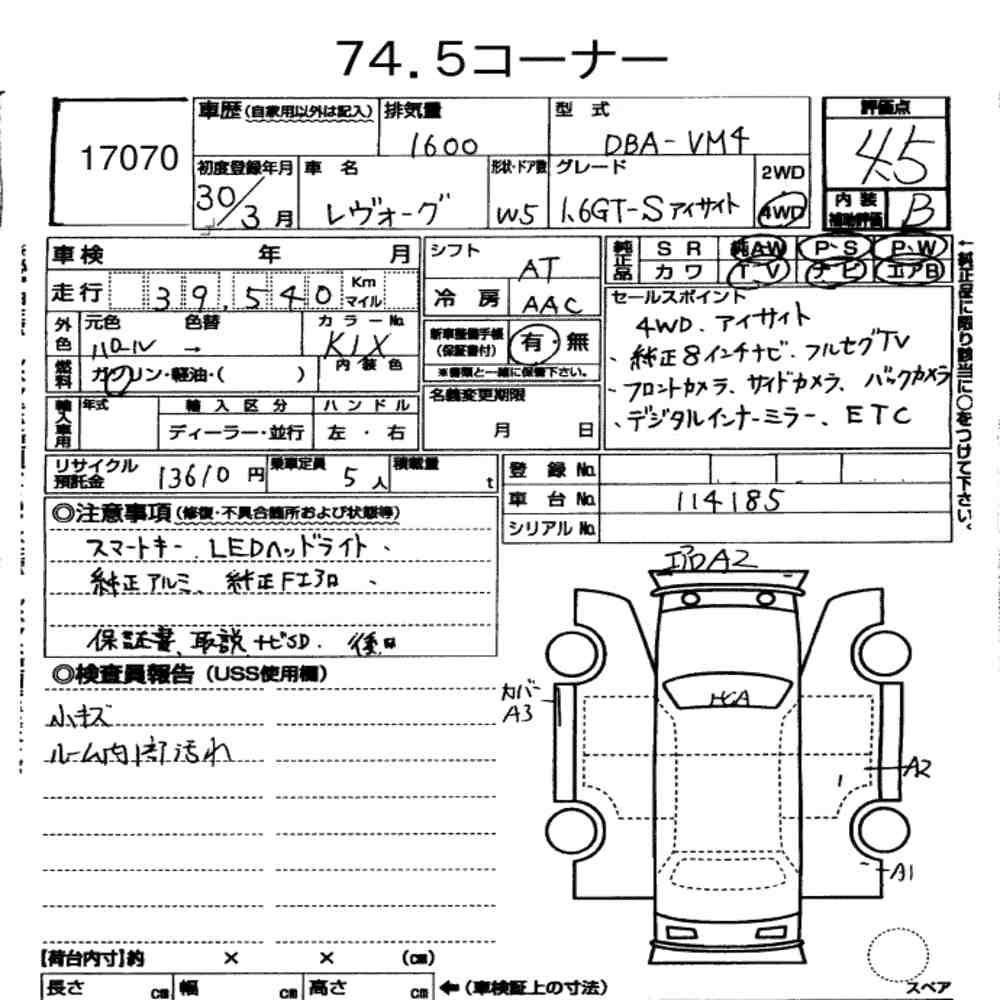 74.5コーナー
17070
車歴 (自家用以外は記入) 排気量 型式
1600 DBA-VM4
評価点
4.5
初度登録年月 車名 形状・ドア数 グレード 2WD
30/3月 レヴォーグ W5 1.6GT-S アイサイト 4WD
内装補助評価 B
車検 年 月
シフト AT
純正品 SR 純AW P・S P・W
カワ TV ナビ エアB
走行 39,540 Km マイル
冷房 AAC
外色 元色 色替 カラーNo.
パール → K1X
新車整備手帳 (保証書付) 有・無
※書類と一緒に保管下さい。
燃料 ガソリン・軽油・( ) 内装色
セールスポイント
4WD、アイサイト
、純正8インチナビ、フルセグTV
、フロントカメラ、サイドカメラ、バックカメラ
、デジタルインナーミラー、ETC
←純正品に限り該当に○をつけて下さい。
輸入車用 年式 輸入区分 ハンドル
ディーラー・並行 左・右
名義変更期限
月 日
リサイクル預託金 13610円 乗車定員 5人 積載量 t
登録No.
車台No. 114185
シリアルNo.
◎注意事項 (修復・不具合箇所および状態等)
スマートキー、LEDヘッドライト、
純正アルミ、純正Fエアロ、
保証書、取説、ナビSD、後日
◎検査員報告 (USS使用欄)
小キズ
ルーム内部汚れ
エアロA2
カバー
A3
HGA
A2
A1
【荷台内寸】約 × × (cm)
長さ cm 幅 cm 高さ cm ←(車検証上の寸法)
スペア